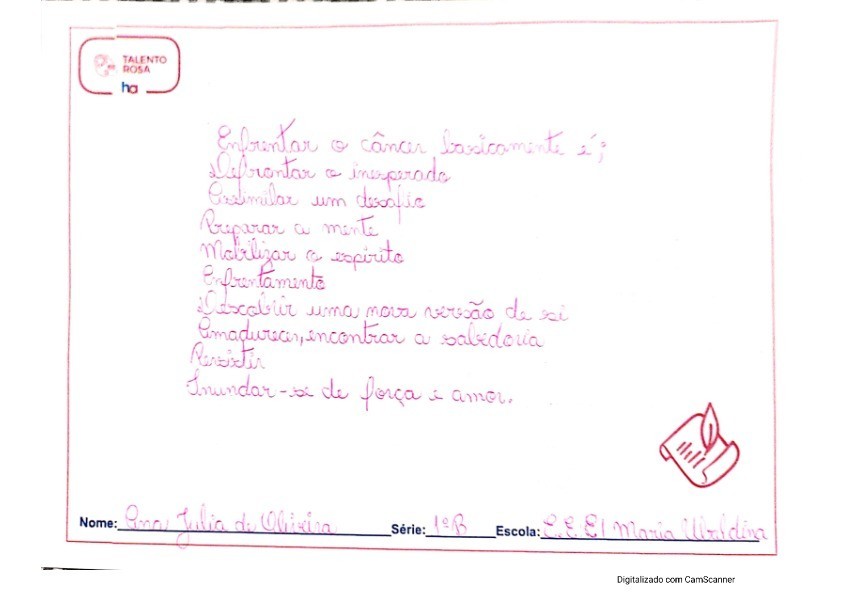 TALENTO
ROSA
ha
Enfrentar o câncer basicamente é;
Defrontar o inesperado
Assimilar um desafio
Preparar a mente
Mobilizar o espírito
Enfrentamento
Descobrir uma nova versão de si
Amadurecer, encontrar a sabedoria
Resistir
Inundar-se de força e amor.
Nome: Ana Julia de Oliveira Série: 1ºB Escola: E.E.EI Maria Ubaldina
Digitalizado com CamScanner